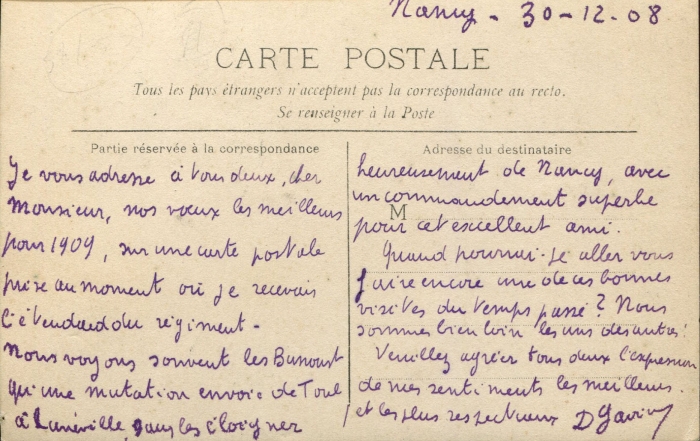 Nancy - 30-12-08
CARTE POSTALE
Tous les pays étrangers n'acceptent pas la correspondance au recto.
Se renseigner à la Poste
Partie réservée à la correspondance
Je vous adresse à tous deux, cher
Monsieur, nos vœux les meilleurs
pour 1909, sur une carte postale
prise au moment où je recevais
l'étendard du régiment -
Nous voyons souvent les
qu'une mutation envoie de Toul
à Lunéville, sans les éloigner
Adresse du destinataire
heureusement de Nancy, avec
un commandement superbe
M
pour cet excellent ami.
Quand pourrai-je aller vous
faire encore une de ces bonnes
visites du temps passé ? Nous
sommes bien loin les uns des autres !
Veuillez agréer tous deux l'expression
de mes sentiments les meilleurs
et les plus respectueux